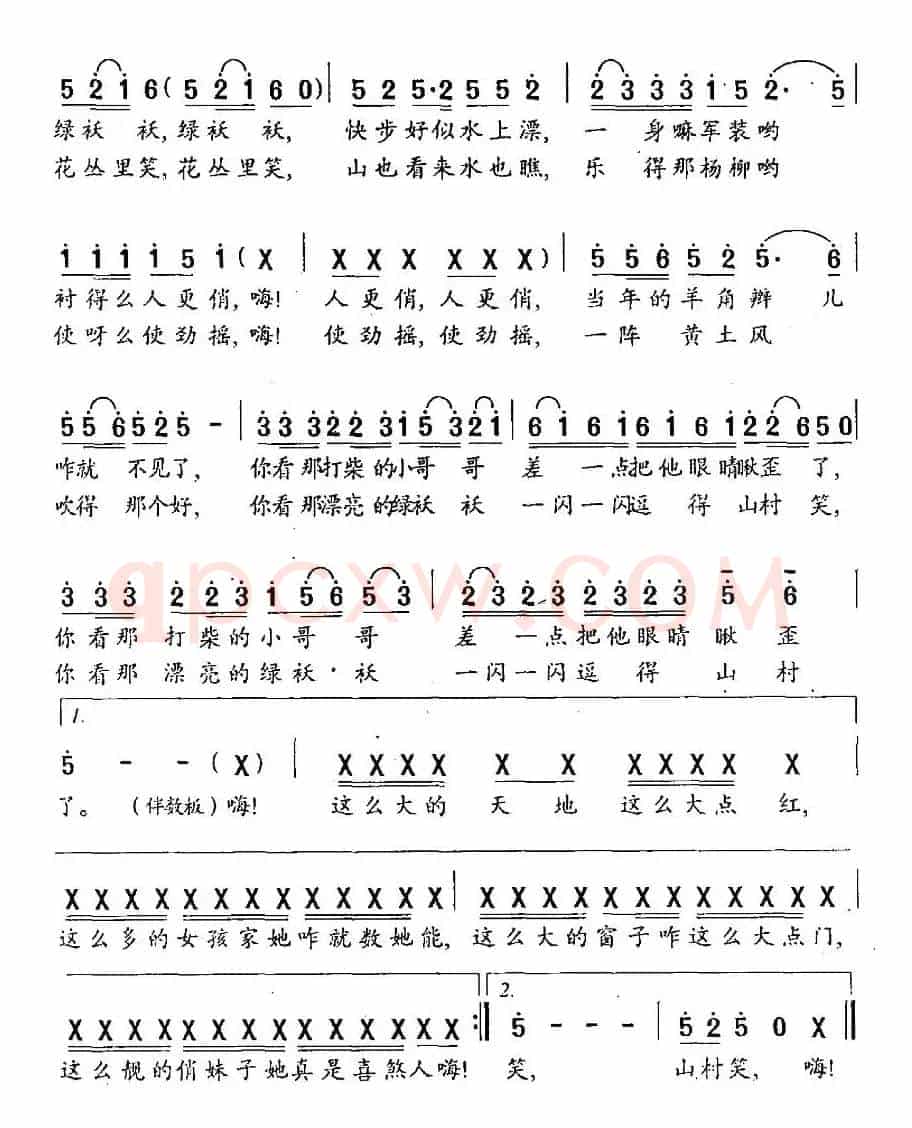 5 2 1 6 ( 5 2 1 6 0 ) | 5 2 5·2 5 5 2 | 2 3 3 3 1 5 2· 5
绿袄 袄,绿袄 袄, 快步好似水上漂, 一 身嘛军装哟
花丛里笑,花丛里笑, 山也看来水也瞧, 乐 得那杨柳哟
1 1 1 1 5 1 ( X | X X X X X X ) | 5 5 6 5 2 5· 6
衬得么人更俏,嗨! 人更俏,人更俏, 当年的羊角辫 儿
使呀么使劲摇,嗨! 使劲摇,使劲摇, 一阵 黄土风
5 5 6 5 2 5 - | 3 3 3 2 2 3 1 5 3 2 1 | 6 1 6 1 6 1 6 1 2 2 6 5 0
咋就 不见了, 你看那打柴的小哥 哥 差 一点把他眼睛瞅歪 了,
吹得 那个好, 你看那漂亮的绿袄 袄 一闪一闪逗 得 山村 笑,
qpcxw.COM
3 3 3 2 2 3 1 5 6 5 3 | 2 3 2 3 2 3 2 3 5 6
你看那 打柴的小哥 哥 差 一点把他眼睛 瞅 歪
你看那 漂亮的绿袄·袄 一闪一闪逗 得 山 村
1.
5 - - ( X ) | X X X X X X X X X X X |
了。 (伴数板)嗨! 这么大的 天 地 这么大点 红,
X X X X X X X X X X X X X | X X X X X X X X X X X X |
这么多的女孩家她咋就数她能, 这么大的窗子咋这么大点门,
2.
X X X X X X X X X X X X X :‖ 5 - - - | 5 2 5 0 X ‖
这么靓的俏妹子她真是喜煞人嗨! 笑, 山村笑, 嗨!